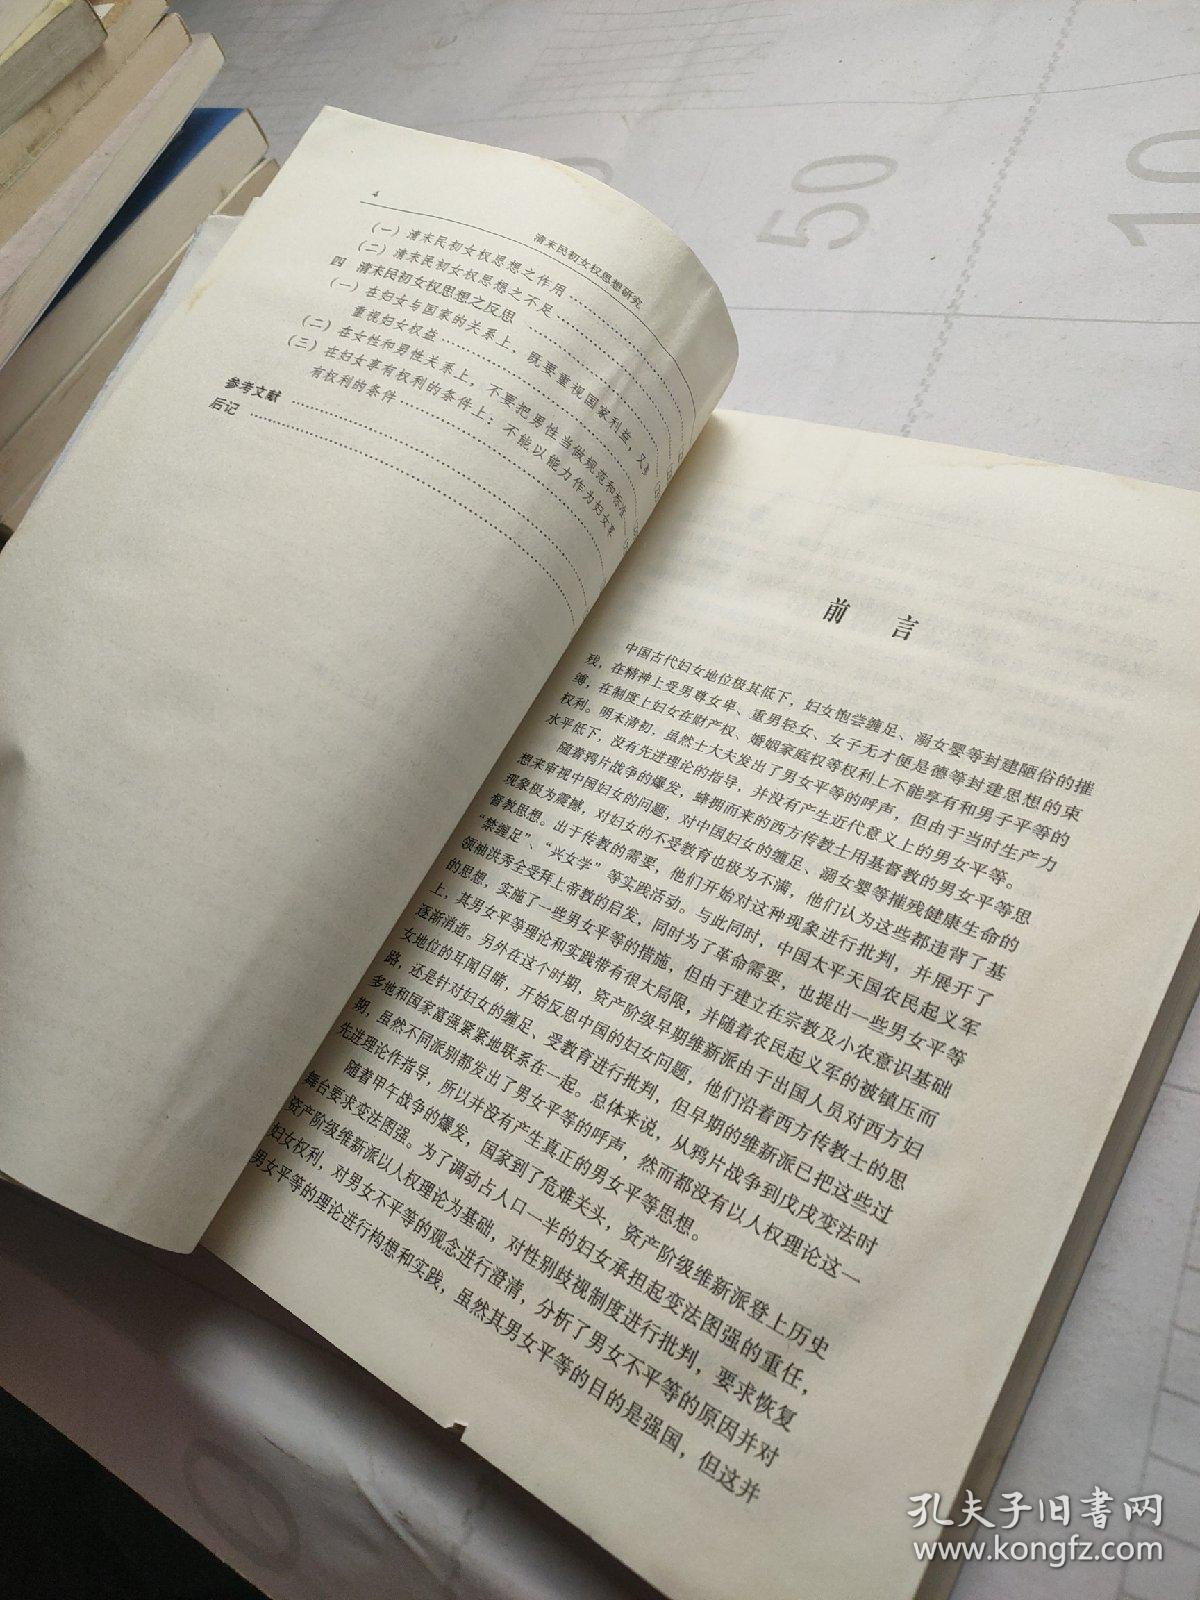 4
清末民初女权思想研究
（一）清末民初女权思想之作用
（二）清末民初女权思想之不足
四 清末民初女权思想之反思
（一）在妇女与国家的关系上，既要重视国家利益，又要
重视妇女权益
（二）在女性和男性关系上，不要把男性当做规范和标准
（三）在妇女享有权利的条件上：不能以能力作为妇女
有权利的条件
参考文献
后记
前 言
中国古代妇女地位极其低下，妇女饱尝缠足、溺女婴等封建陋俗的摧
残，在精神上受男尊女卑、重男轻女、女子无才便是德等封建思想的束
缚，在制度上妇女在财产权、婚姻家庭权等权利上不能享有和男子平等的
权利。明末清初，虽然士大夫发出了男女平等的呼声，但由于当时生产力
水平低下，没有先进理论的指导，并没有产生近代意义上的男女平等。
随着鸦片战争的爆发，蜂拥而来的西方传教士用基督教的男女平等思
想来审视中国妇女的问题，对中国妇女的缠足、溺女婴等摧残健康生命的
现象极为震撼，对妇女的不受教育也极为不满，他们认为这些都违背了基
督教思想。出于传教的需要，他们开始对这种现象进行批判，并展开了
“禁缠足”、“兴女学”等实践活动。与此同时，中国太平天国农民起义军
领袖洪秀全受拜上帝教的启发，同时为了革命需要，也提出一些男女平等
的思想，实施了一些男女平等的措施，但由于建立在宗教及小农意识基础
上，其男女平等理论和实践带有很大局限，并随着农民起义军的被镇压而
逐渐消逝。另外在这个时期，资产阶级早期维新派由于出国人员对西方妇
女地位的耳闻目睹，开始反思中国的妇女问题，他们沿着西方传教士的思
路，还是针对妇女的缠足、受教育进行批判，但早期的维新派已把这些过
多地和国家富强紧紧地联系在一起。总体来说，从鸦片战争到戊戌变法时
期，虽然不同派别都发出了男女平等的呼声，然而都没有以人权理论这一
先进理论作指导，所以并没有产生真正的男女平等思想。
随着甲午战争的爆发，国家到了危难关头，资产阶级维新派登上历史
舞台要求变法图强。为了调动占人口一半的妇女承担起变法图强的重任，
资产阶级维新派以人权理论为基础，对性别歧视制度进行批判，要求恢复
妇女权利，对男女不平等的观念进行澄清，分析了男女不平等的原因并对
男女平等的理论进行构想和实践，虽然其男女平等的目的是强国，但这并
50
10
孔夫子旧书网
www.kongfz.com